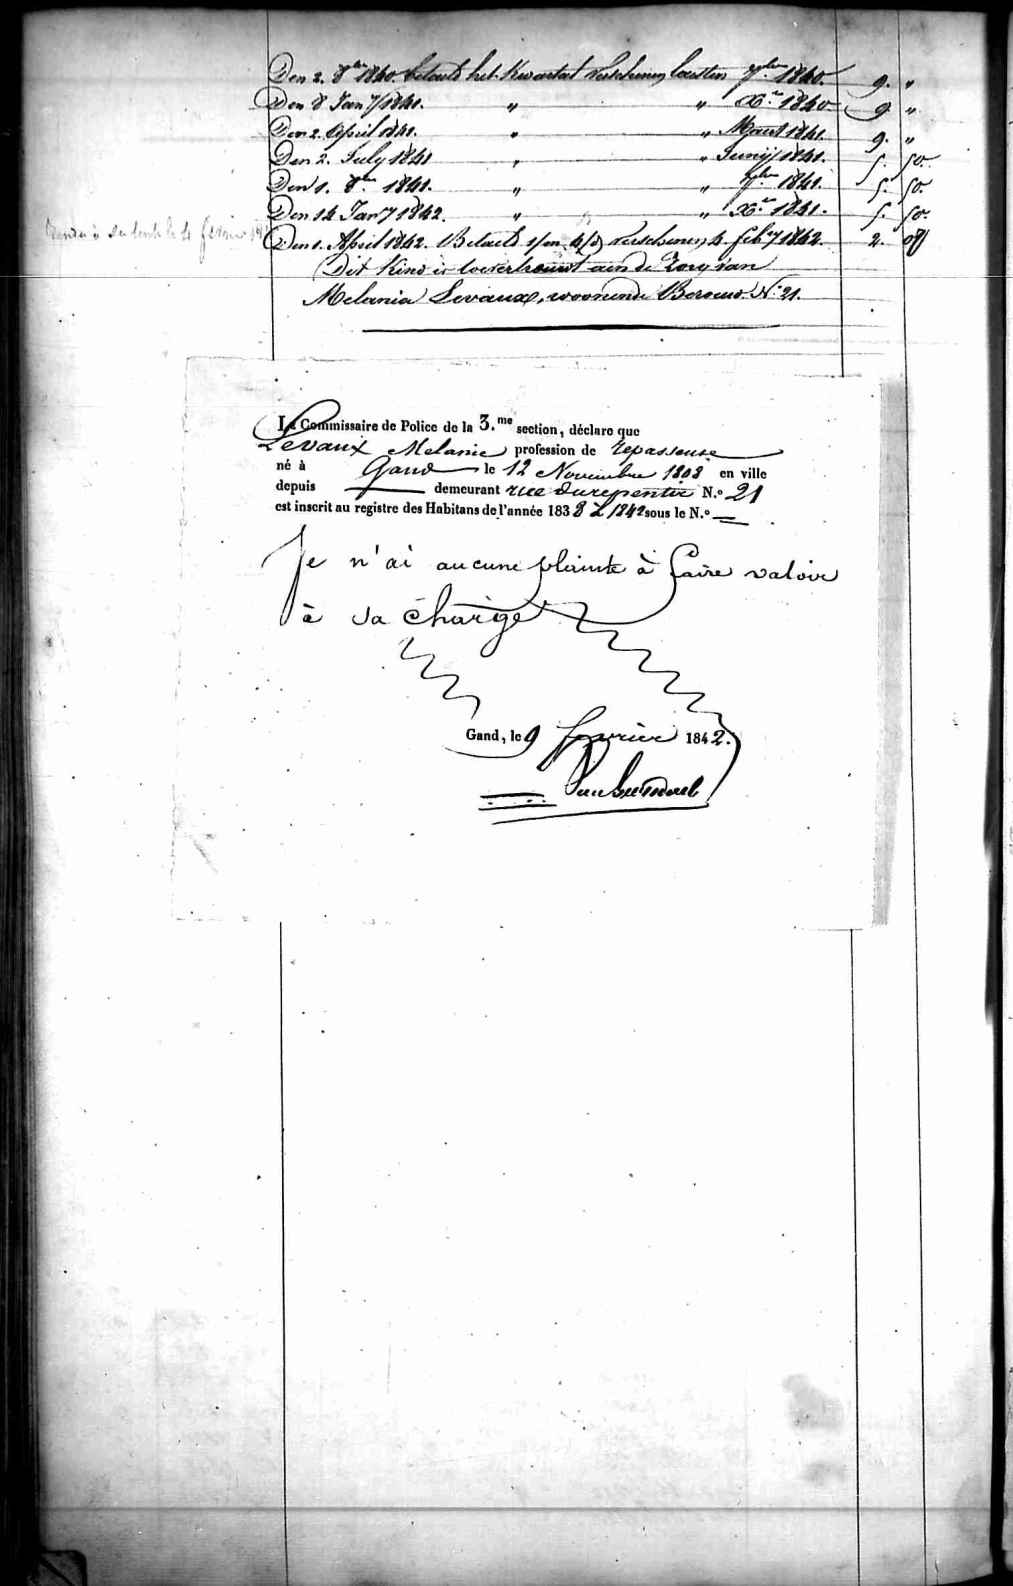 Den 2. 8ber 1840. betaeld het kwartael verschenen laetsten 7ber 1840. 9. "
Den 8 Jany 1841. " " Xr 1840 9. "
Den 2. April 1841. " " Maert 1841. 9. "
Den 2. July 1841 " " Junij 1841. 5. 50.
Den 1. 8ber 1841. " " 7ber 1841. 5. 50.
Den 14 Jany 1842. " " Xr 1841. 5. 50.
Rendu à sa tante le 4 février
Den 1. April 1842. Betaeld verschenen 4 feby 1842. 2. 08
Dit Kind is toevertrouwd aen de Zorg van
Melania Levaux, woonende N.° 21.
Le Commissaire de Police de la 3.me section, déclare que
Levaux Melanie profession de repasseuse
né à Gand le 12 Novembre 1808 en ville
depuis — demeurant rue du repentir N.° 21
est inscrit au registre des Habitans de l'année 1838 à 1842 sous le N.° —
Je n'ai aucune plainte à faire valoir
à sa charge
Gand, le 9 février 1842.